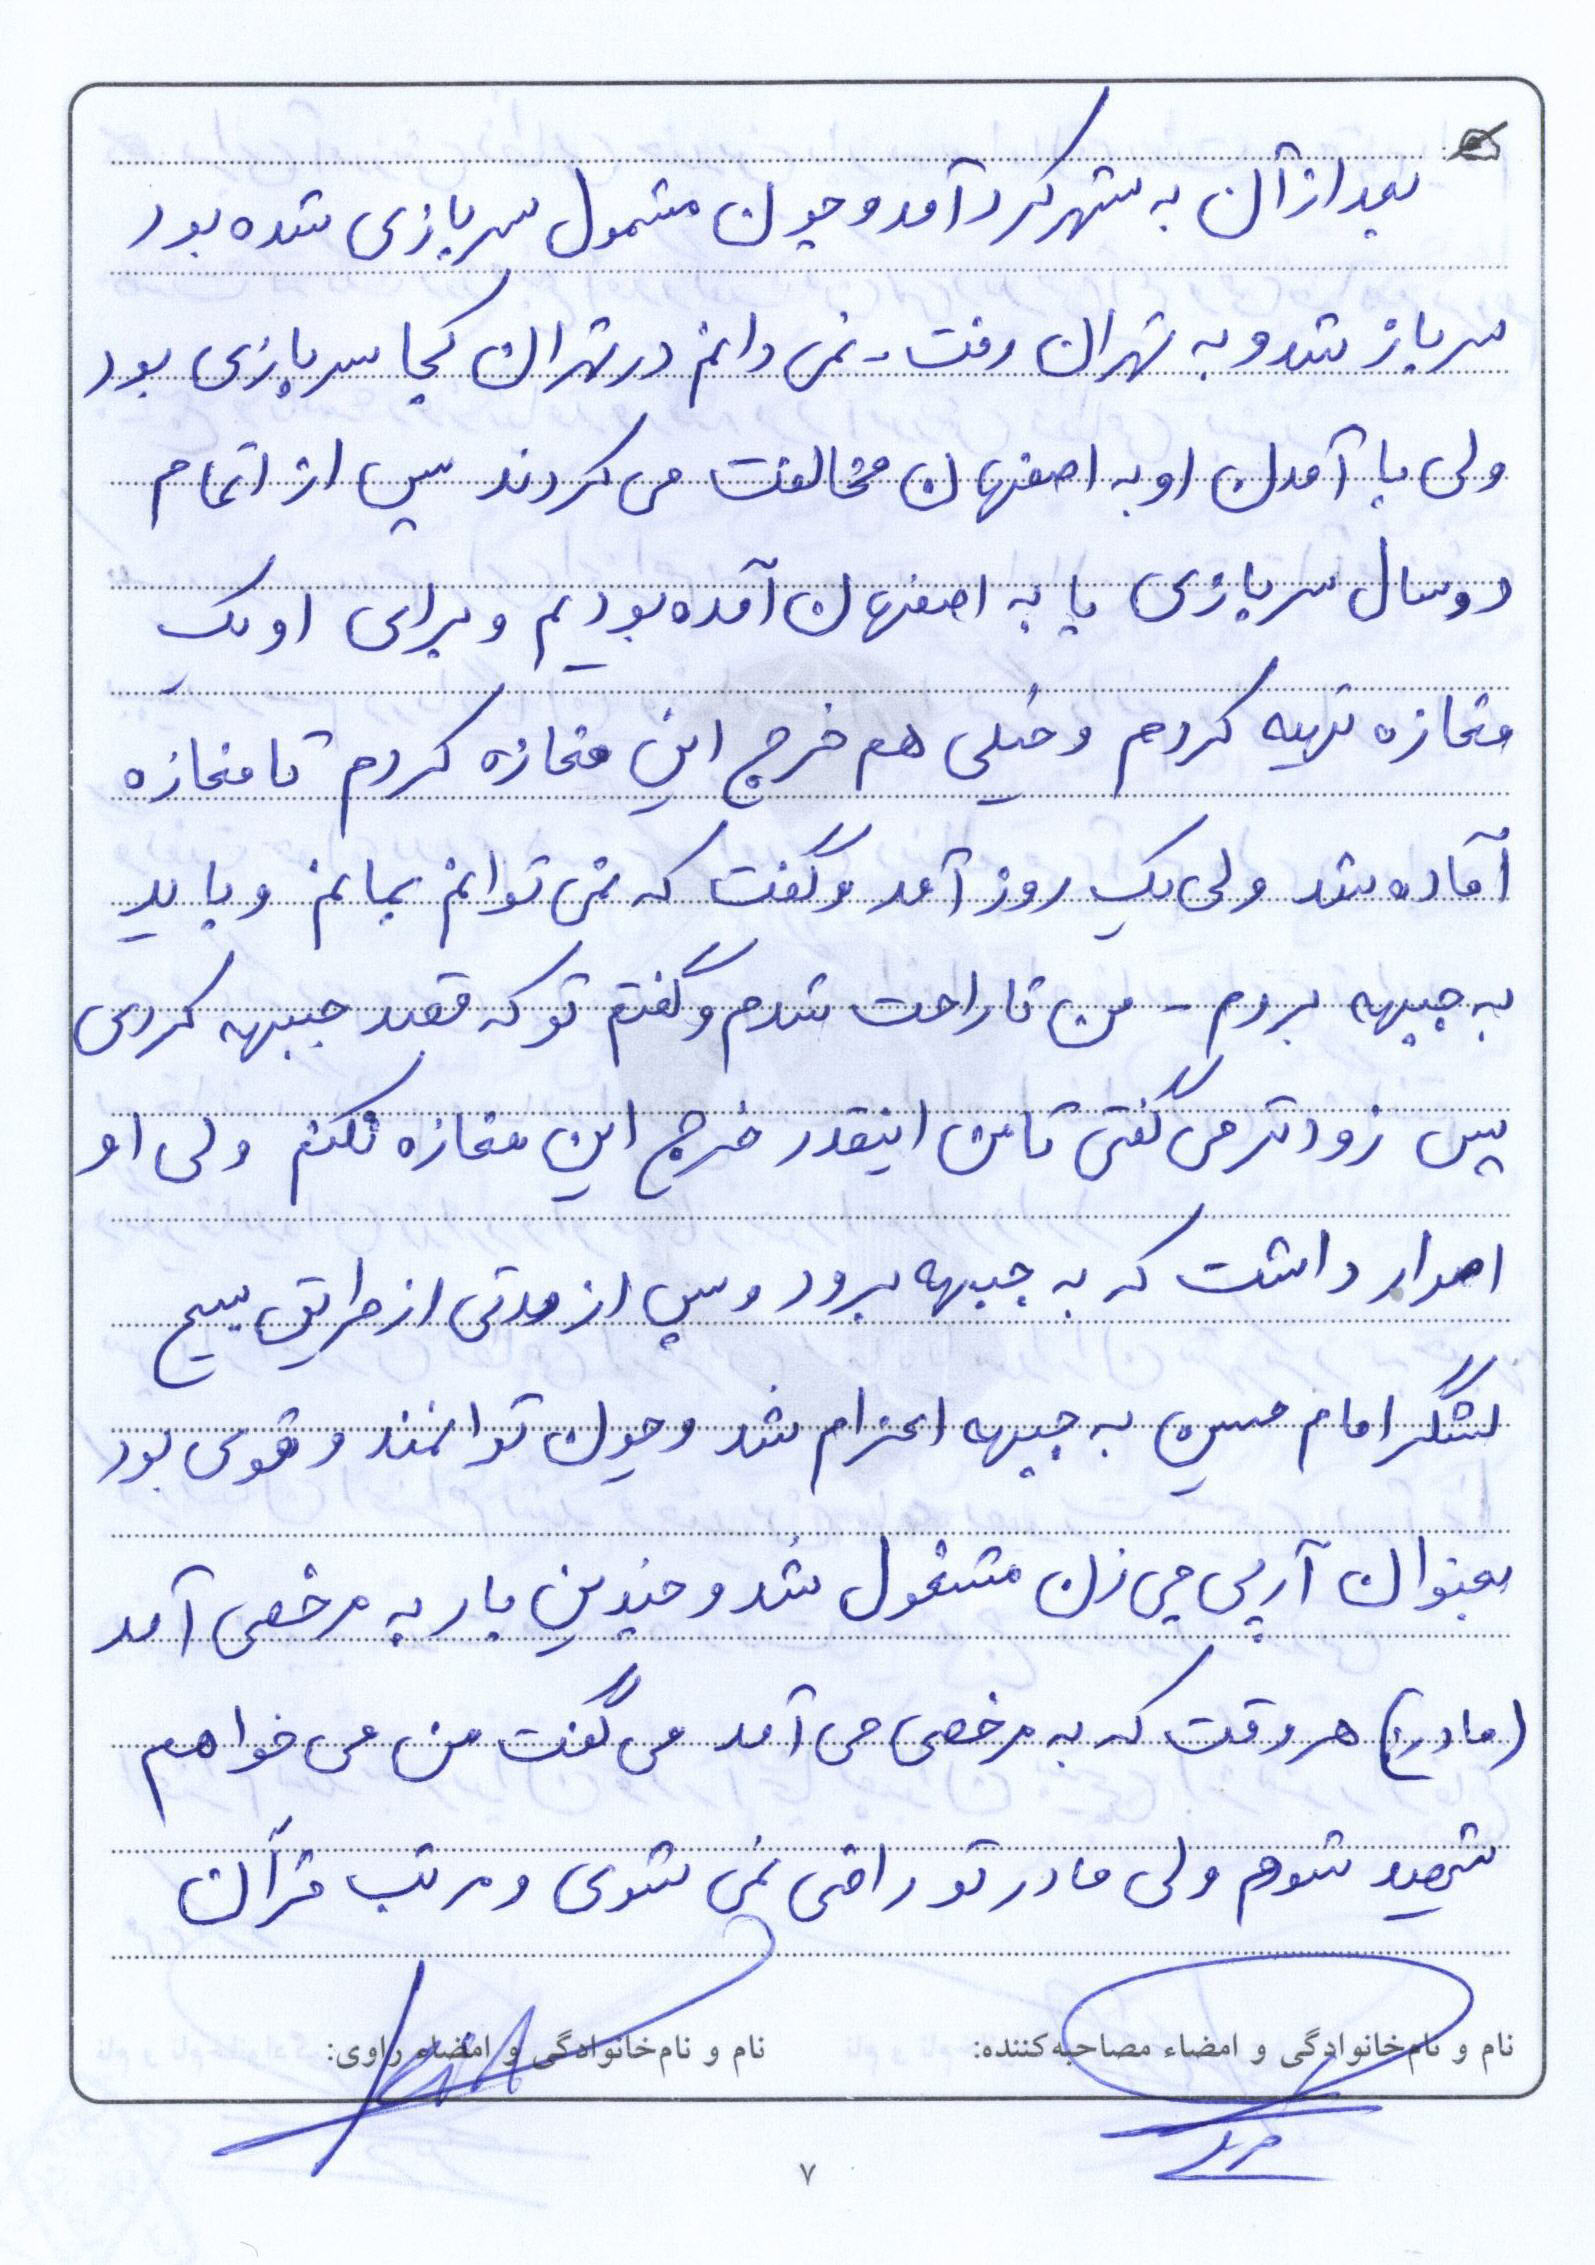 بعد از آن به شهرکرد آمد و چون مشمول سربازی شده بود
سرباز شد و به تهران رفت - نمی دانم در تهران کجا سربازی بود
ولی با آمدن او به اصفهان مخالفت می کردند پس از اتمام
دوسال سربازی ما به اصفهان آمده بودیم و برای او یک
مغازه تهیه کردم و خیلی هم خرج این مغازه کردم تا مغازه
آماده شد ولی یک روز آمد و گفت که نمی توانم بمانم و باید
به جبهه بروم - من ناراحت شدم و گفتم تو که قصد جبهه کردی
پس زودتر می گفتی تا من اینقدر خرج این مغازه نکنم ولی او
اصرار داشت که به جبهه برود و پس از مدتی از طریق بسیج
لشگر امام حسین به جبهه اعزام شد و چون توانمند و قوی بود
بعنوان آرپی جی زن مشغول شد و چندین بار به مرخصی آمد
(مادر) هر وقت که به مرخصی می آمد می گفت من می خواهم
شهید شوم ولی مادر تو راضی نمی شوی و مرتب قرآن
نام و نام‌خانوادگی و امضاء مصاحبه‌کننده: نام و نام‌خانوادگی و امضاء راوی:
۷